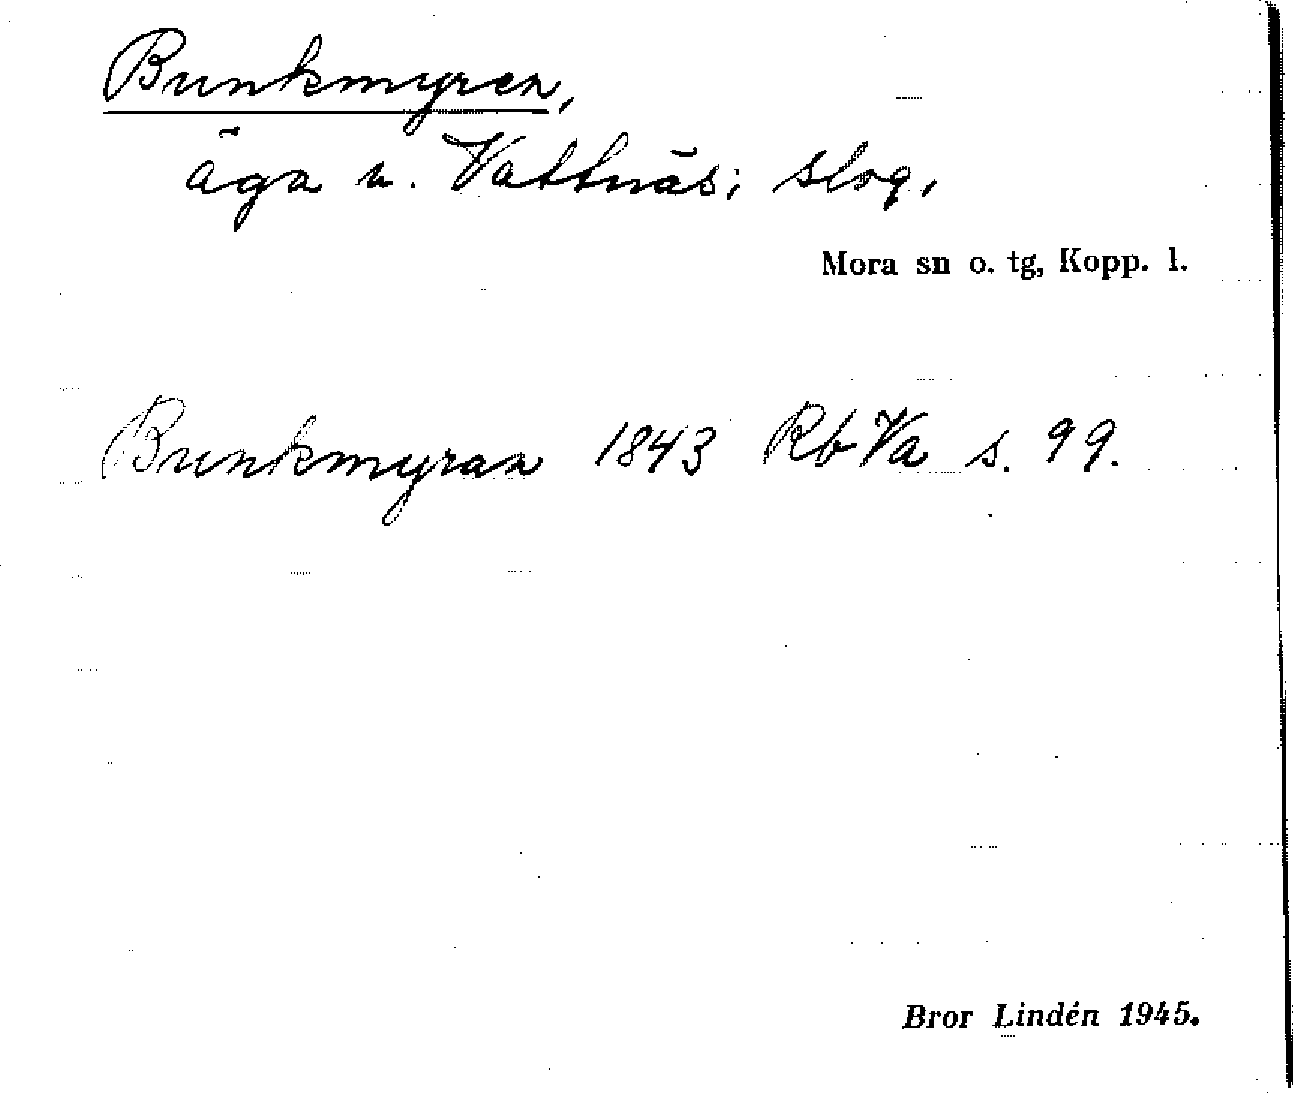 Bunkmyren,
äga u. Vattnäs; slog,
Mora sn o. tg, Kopp. l.
Bunkmyran 1843 RbVa s. 99.
Bror Lindén 1945.